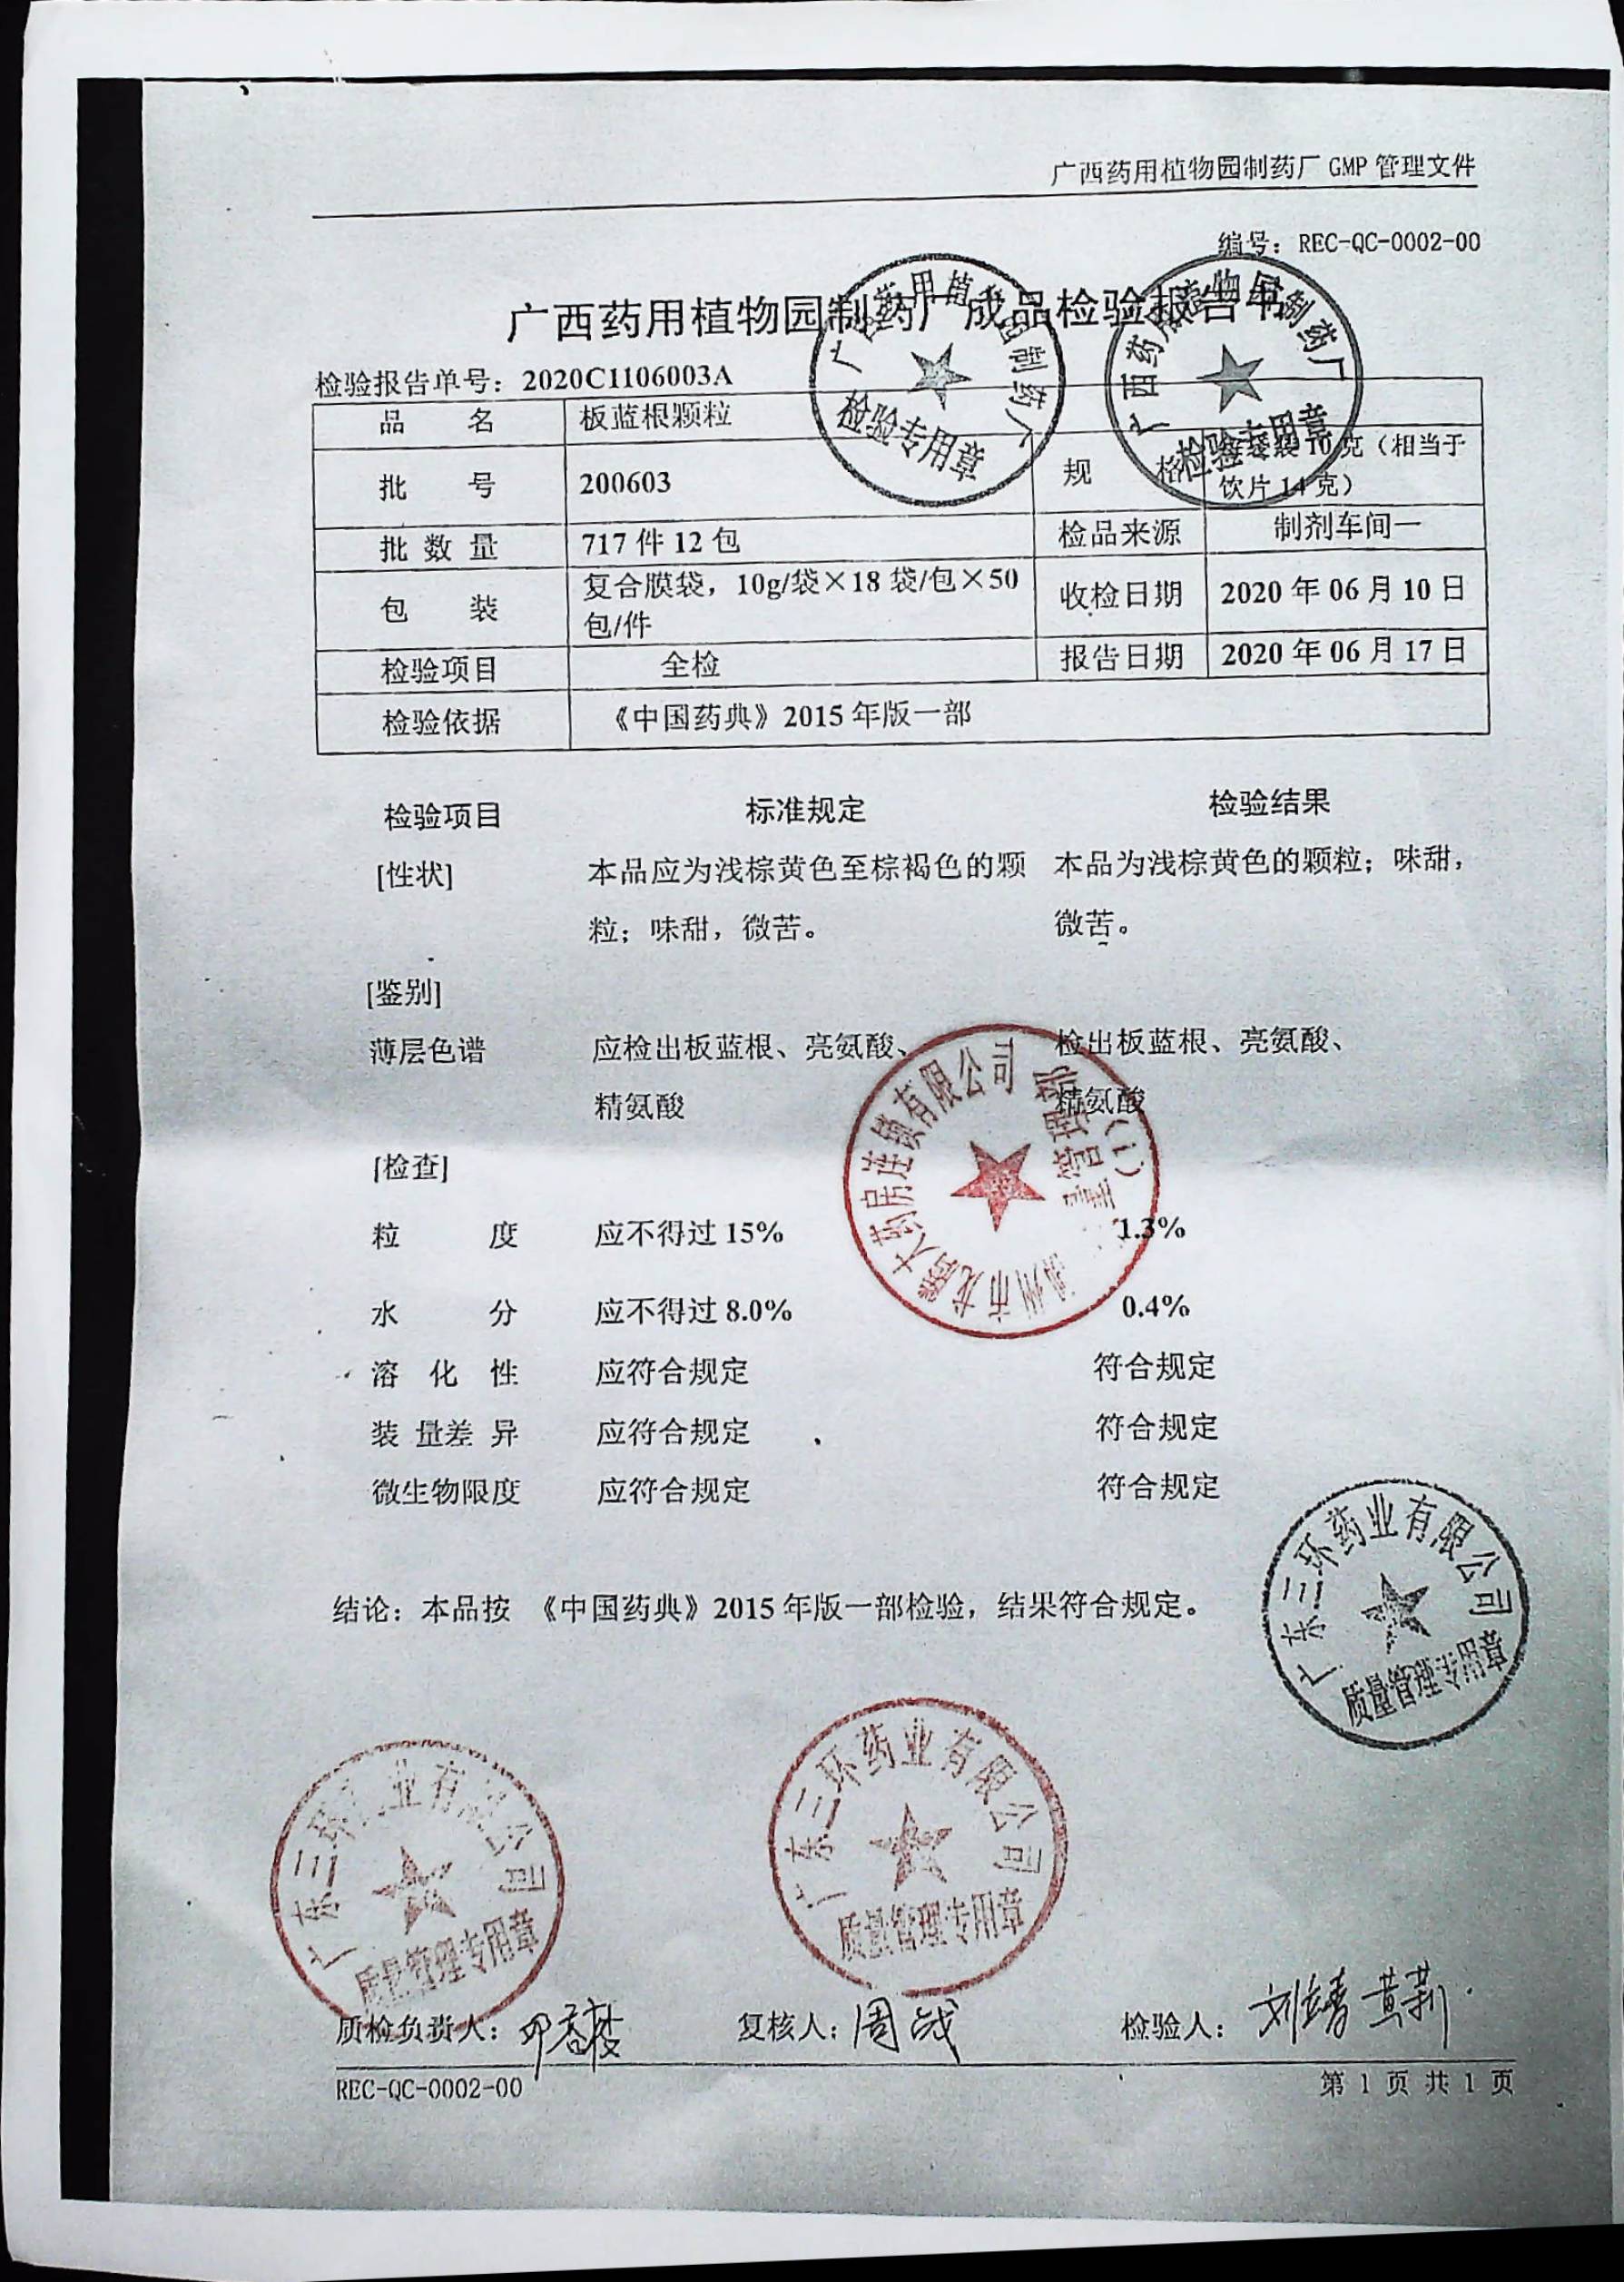 广西药用植物园制药厂 GMP 管理文件
编号：REC-QC-0002-00
广西药用植物园制药厂成品检验报告书
检验报告单号：2020C1106003A
品 名 板蓝根颗粒
批 号 200603 规 格 每袋装 10 克（相当于
饮片 14 克）
批 数 量 717 件 12 包 检品来源 制剂车间一
包 装 复合膜袋，10g/袋×18 袋/包×50
包/件 收检日期 2020 年 06 月 10 日
检验项目 全检 报告日期 2020 年 06 月 17 日
检验依据 《中国药典》2015 年版一部
广西药用植物园制药厂
检验专用章
广西药用植物园制药厂
检验专用章
检验项目 标准规定 检验结果
[性状] 本品应为浅棕黄色至棕褐色的颗 本品为浅棕黄色的颗粒；味甜，
粒；味甜，微苦。 微苦。
[鉴别]
薄层色谱 应检出板蓝根、亮氨酸、 检出板蓝根、亮氨酸、
精氨酸 精氨酸
[检查]
粒 度 应不得过 15% 1.3%
水 分 应不得过 8.0% 0.4%
溶 化 性 应符合规定 符合规定
装 量 差 异 应符合规定 符合规定
微生物限度 应符合规定 符合规定
大药房连锁有限公司
管理部
（1）
结论：本品按 《中国药典》2015 年版一部检验，结果符合规定。
广东三环药业有限公司
质量管理专用章
广东三环药业有限公司
质量管理专用章
广东三环药业有限公司
质量管理专用章
质检负责人： 复核人：周战 检验人：刘靖 黄莉
REC-QC-0002-00 第 1 页 共 1 页